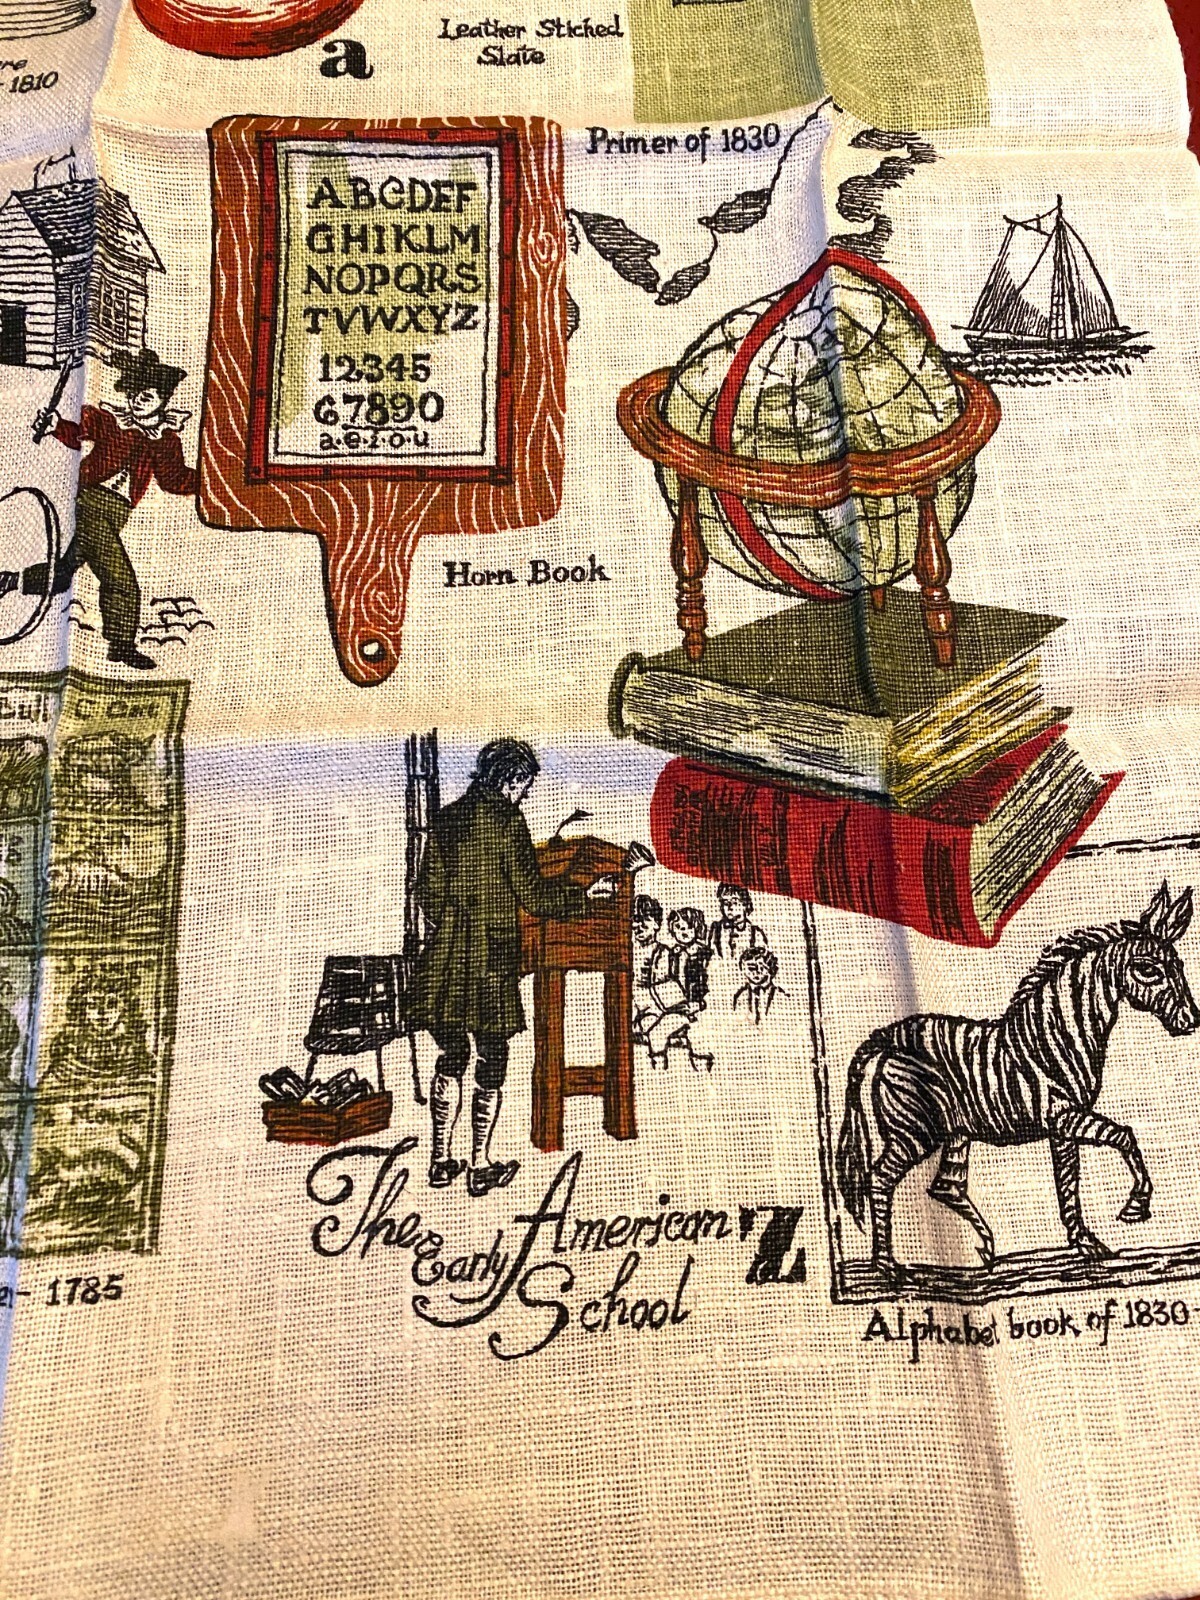 a
Leather Stiched
Slate
1810
Primer of 1830
ABCDEF
GHIKLM
NOPQRS
TVWXYZ
12345
67890
a.e.i.o.u
Horn Book
1785
The Early American
School
Z
Alphabet book of 1830